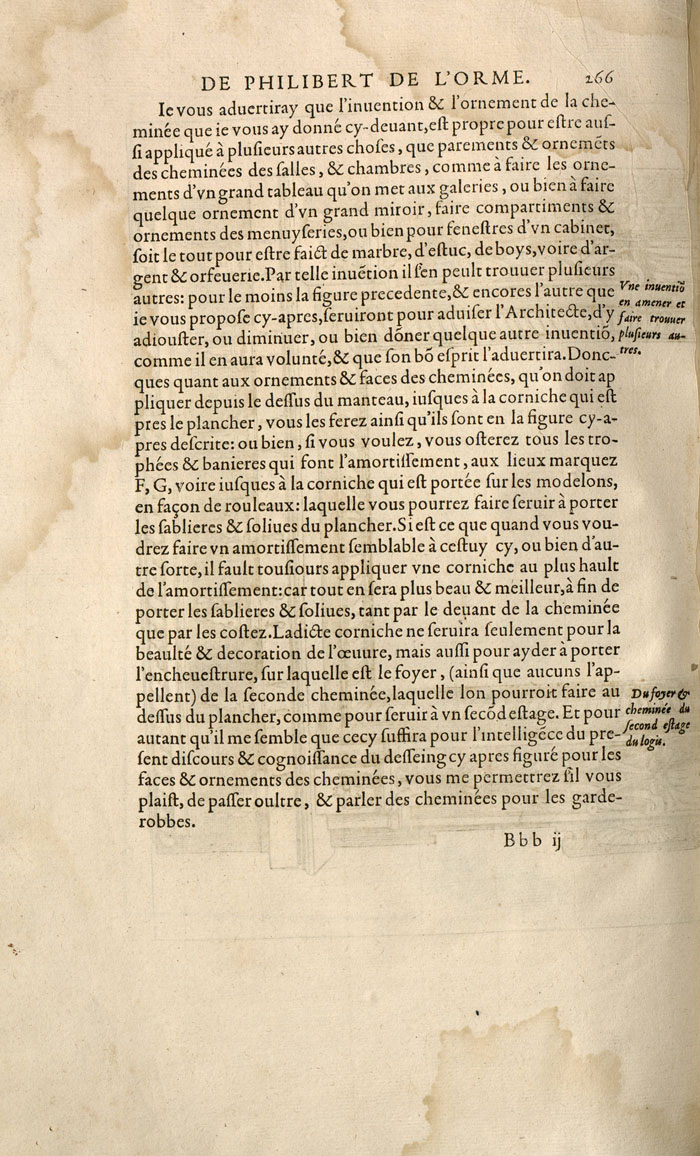 DE PHILIBERT DE L'ORME. 266
Ie vous aduertiray que l'inuention & l'ornement de la che-
minée que ie vous ay donné cy-deuant, est propre pour estre auſ-
ſi appliqué à pluſieurs autres choſes, que parements & ornemẽts
des cheminées des ſalles, & chambres, comme à faire les orne-
ments d'vn grand tableau qu'on met aux galeries, ou bien à faire
quelque ornement d'vn grand miroir, faire compartiments &
ornements des menuyſeries, ou bien pour feneſtres d'vn cabinet,
ſoit le tout pour eſtre faict de marbre, d'eſtuc, de boys, voire d'ar-
gent & orfeuerie. Par telle inuẽtion il ſen peult trouuer pluſieurs
autres: pour le moins la figure precedente, & encores l'autre que
ie vous propoſe cy-apres, ſeruiront pour aduiſer l'Architecte, d'y
adiouſter, ou diminuer, ou bien dõner quelque autre inuentiõ,
comme il en aura volunté, & que ſon bõ eſprit l'aduertira. Donc-
ques quant aux ornements & faces des cheminées, qu'on doit ap
pliquer depuis le deſſus du manteau, iuſques à la corniche qui eſt
pres le plancher, vous les ferez ainſi qu'ils ſont en la figure cy-a-
pres deſcrite: ou bien, ſi vous voulez, vous oſterez tous les tro-
phées & banieres qui font l'amortiſſement, aux lieux marquez
F, G, voire iuſques à la corniche qui eſt portée ſur les modelons,
en façon de rouleaux: laquelle vous pourrez faire ſeruir à porter
les ſablieres & ſoliues du plancher. Si eſt ce que quand vous vou-
drez faire vn amortiſſement ſemblable à ceſtuy cy, ou bien d'au-
tre ſorte, il fault touſiours appliquer vne corniche au plus hault
de l'amortiſſement: car tout en ſera plus beau & meilleur, à fin de
porter les ſablieres & ſoliues, tant par le deuant de la cheminée
que par les coſtez. Ladicte corniche ne ſeruira ſeulement pour la
beaulté & decoration de l'œuure, mais auſſi pour ayder à porter
l'encheueſtrure, ſur laquelle eſt le foyer, (ainſi que aucuns l'ap-
pellent) de la ſeconde cheminée, laquelle lon pourroit faire au
deſſus du plancher, comme pour ſeruir à vn ſecõd eſtage. Et pour
autant qu'il me ſemble que cecy ſuffira pour l'intelligẽce du pre-
ſent diſcours & cognoiſſance du deſſeing cy apres figuré pour les
faces & ornements des cheminées, vous me permettrez ſil vous
plaiſt, de paſſer oultre, & parler des cheminées pour les garde-
robbes.
Bbb ij
Vne inuentiõ
en amener et
faire trouuer
pluſieurs au-
tres.
Du foyer &
cheminée du
ſecond eſtage
du logis.